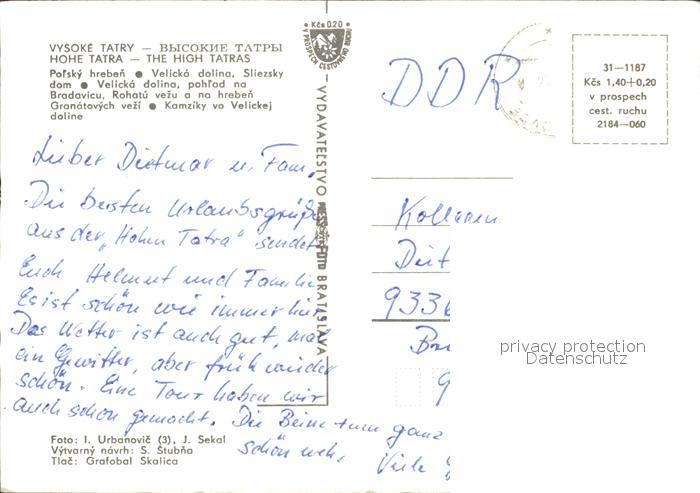 Kčs 0.20
V PROSPECH CESTOVNÉHO RUCHU
VYSOKÉ TATRY — ВЫСОКИЕ ТАТРЫ
HOHE TATRA — THE HIGH TATRAS
Poľský hrebeň ● Velická dolina, Sliezsky
dom ● Velická dolina, pohľad na
Bradavicu, Rohatú vežu a na hrebeň
Granátových veží ● Kamzíky vo Velickej
doline
31—1187
Kčs 1,40+0,20
v prospech
cest. ruchu
2184—060
DDR
VYDAVATEĽSTVO BRATISLAVA
Lieber Dietmar u. Fam.
Die besten Urlaubsgrüße
aus der „Hohen Tatra" sendet
Euch Helmut und Familie
Es ist schön wie immer hier
Das Wetter ist auch gut, mal
ein Gewitter, aber früh wieder
schön. Eine Tour haben wir
auch schon gemacht. Die Beine tun ganz
schön weh. Viele
Kollegen
Diet
933
9
privacy protection
Datenschutz
Foto: I. Urbanovič (3), J. Sekal
Výtvarný návrh: S. Štubňa
Tlač: Grafobal Skalica